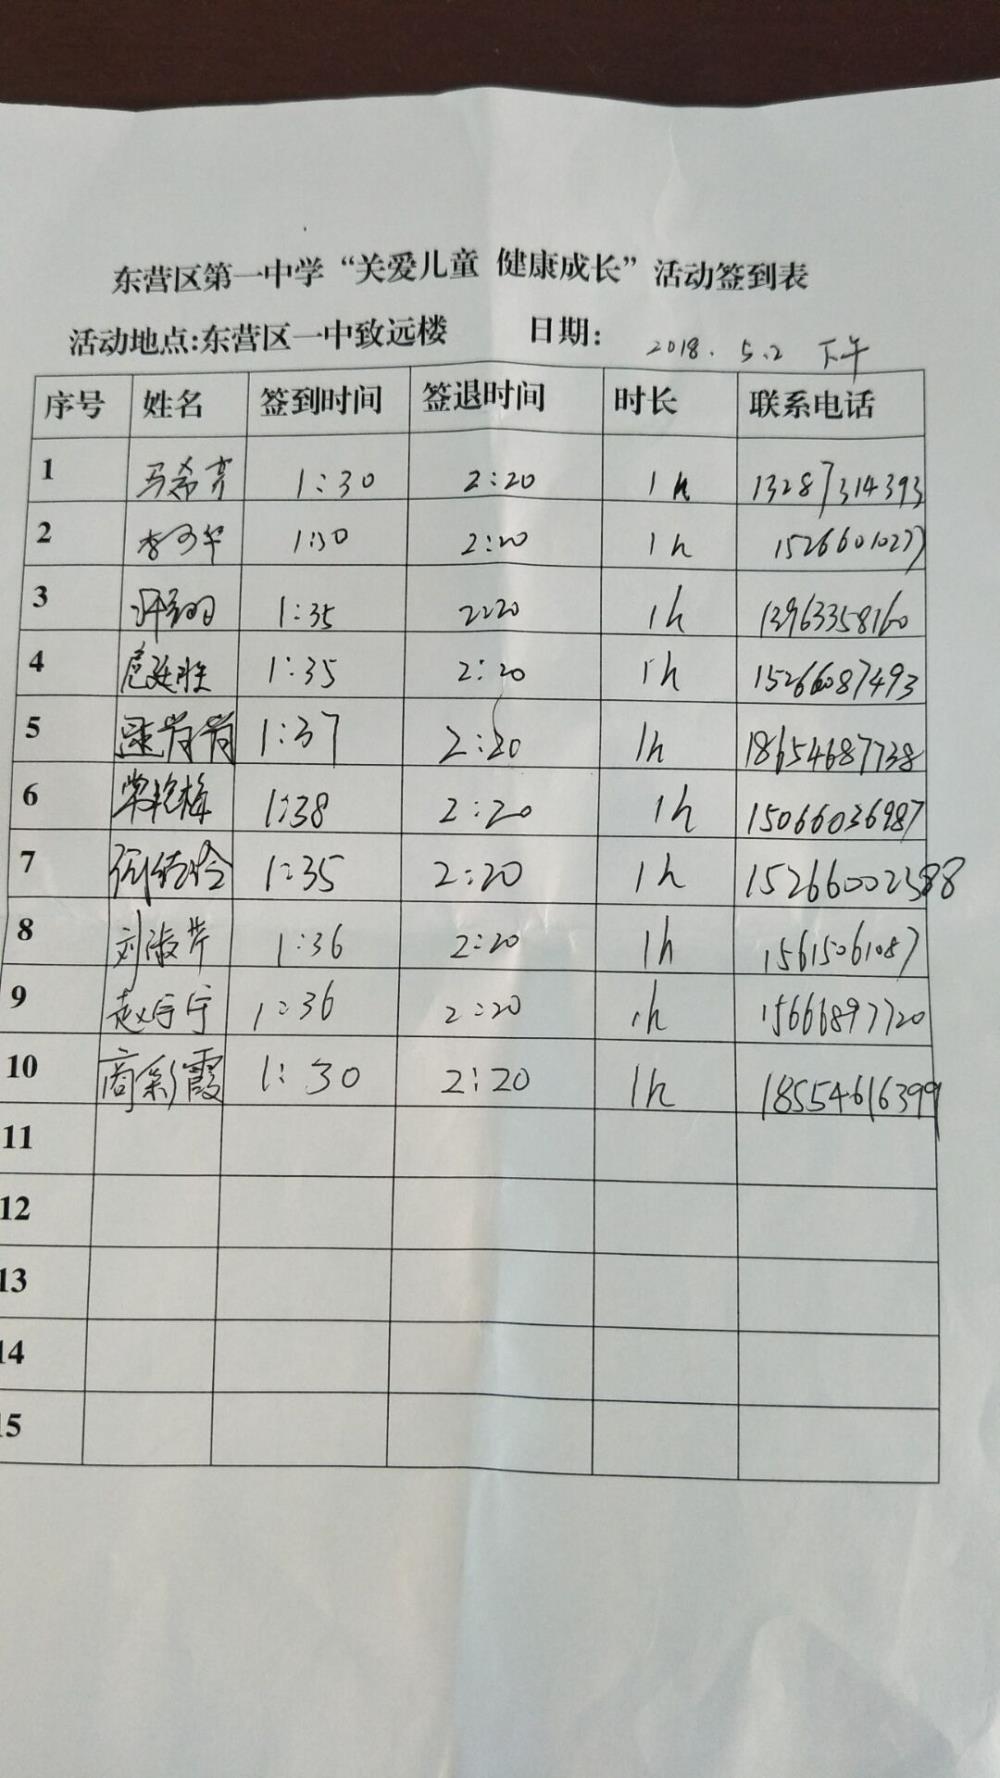 东营区第一中学“关爱儿童 健康成长”活动签到表
活动地点:东营区一中致远楼 日期: 2018. 5.2 下午
序号 姓名 签到时间 签退时间 时长 联系电话
1 马希亮 1:30 2:20 1h 13287314393
2 1:30 2:20 1h 15266010277
3 1:35 2:20 1h 13963358160
4 1:35 2:20 1h 15266087493
5 1:37 2:20 1h 18654687738
6 常艳梅 1:38 2:20 1h 15066036987
7 1:35 2:20 1h 15266002588
8 刘淑芹 1:36 2:20 1h 15615061087
9 赵宁宁 1:36 2:20 1h 15666897720
10 商彩霞 1:30 2:20 1h 18554616399
11
12
13
14
15